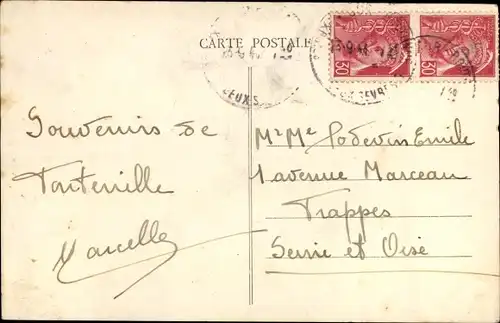 CARTE POSTALE
DEUX S
30
30
Souvenirs de
Marcelle
Mr Me Podevin Emile
1 avenue Marceau
Trappes
Seine et Oise